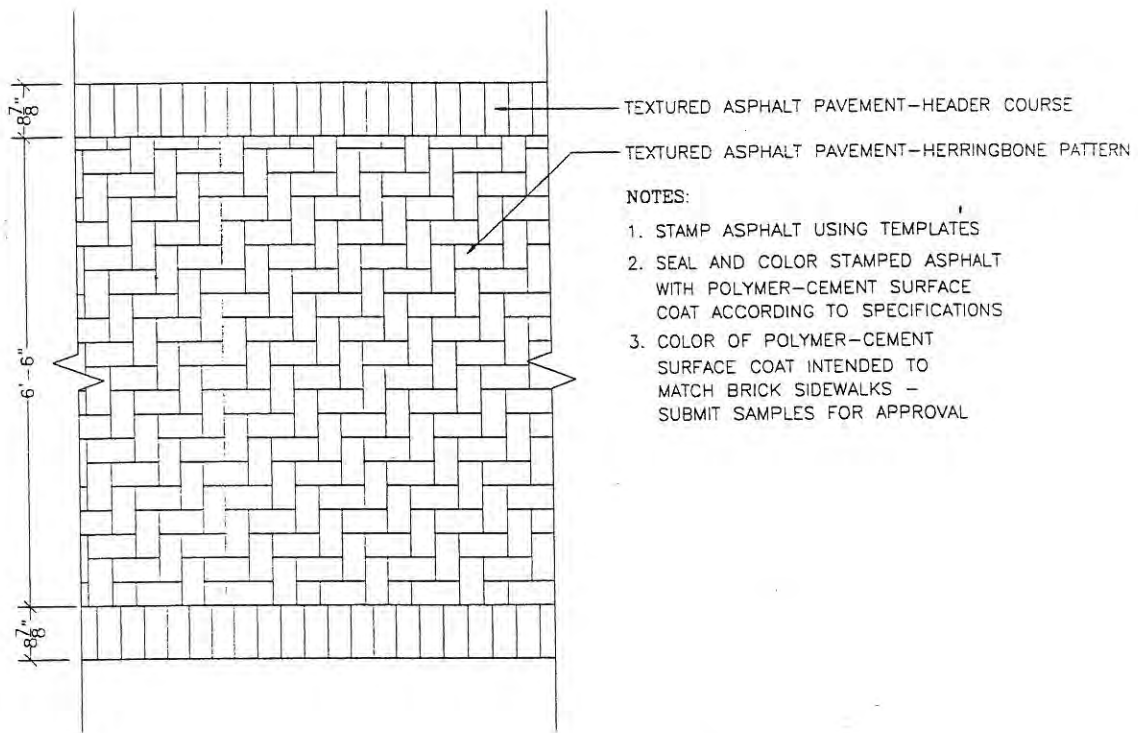 8 7/8"
TEXTURED ASPHALT PAVEMENT-HEADER COURSE
TEXTURED ASPHALT PAVEMENT-HERRINGBONE PATTERN
NOTES:
1. STAMP ASPHALT USING TEMPLATES
2. SEAL AND COLOR STAMPED ASPHALT
WITH POLYMER-CEMENT SURFACE
COAT ACCORDING TO SPECIFICATIONS
3. COLOR OF POLYMER-CEMENT
SURFACE COAT INTENDED TO
MATCH BRICK SIDEWALKS -
SUBMIT SAMPLES FOR APPROVAL
6'-6"
8 7/8"